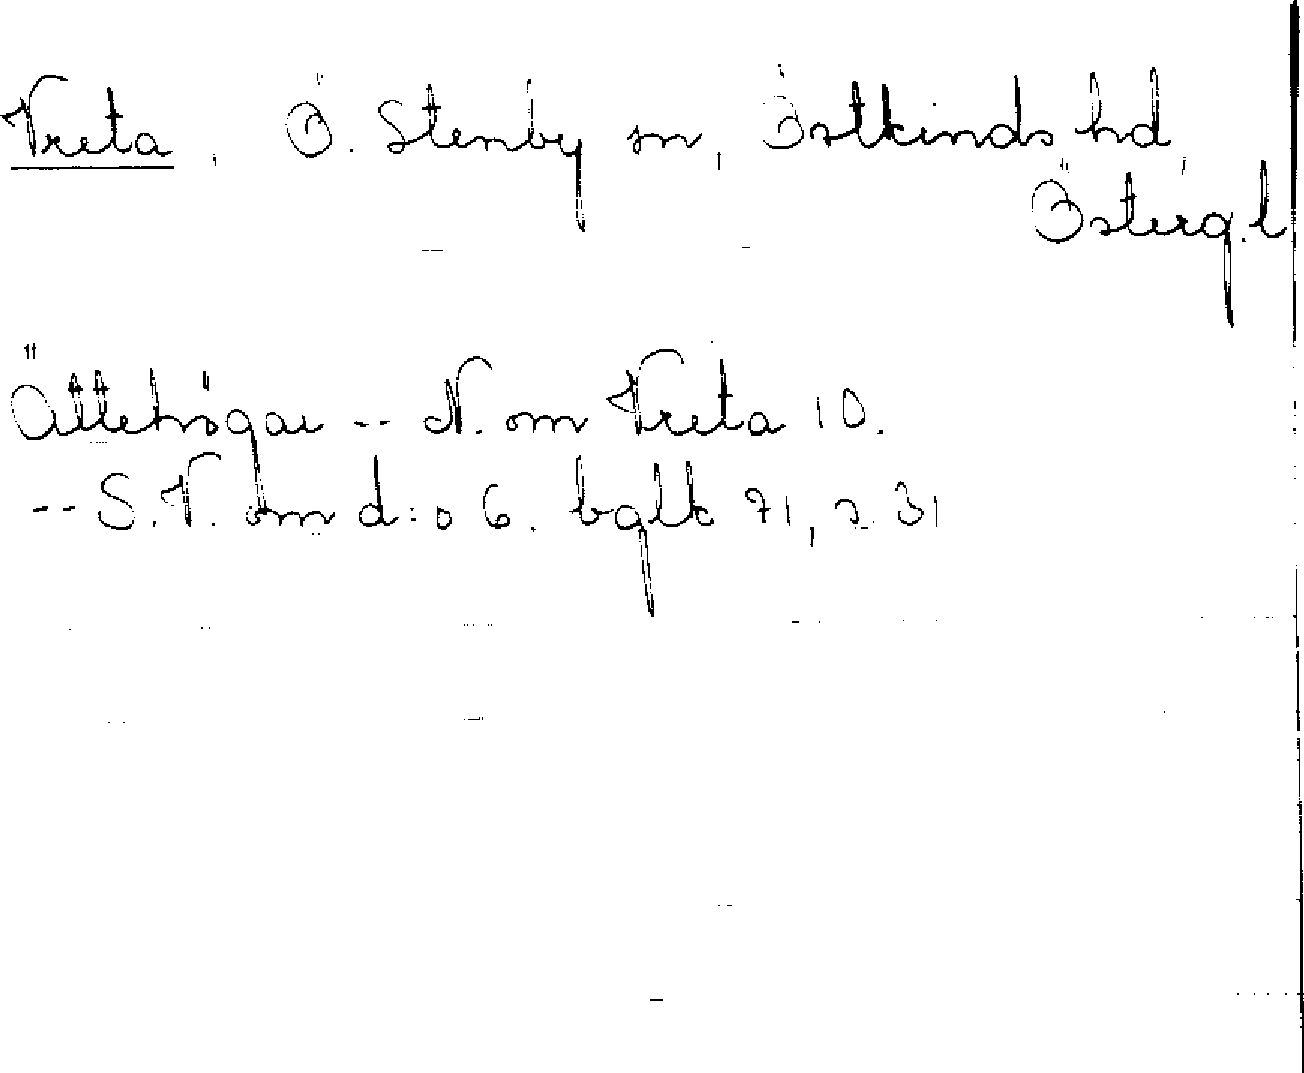 Vreta, Ö. Stenby sn, Östkinds hd,
Österg. l
Ättehögar -- N. om Vreta 10.
-- S.V. om d:o 6. bglk 71, s. 31